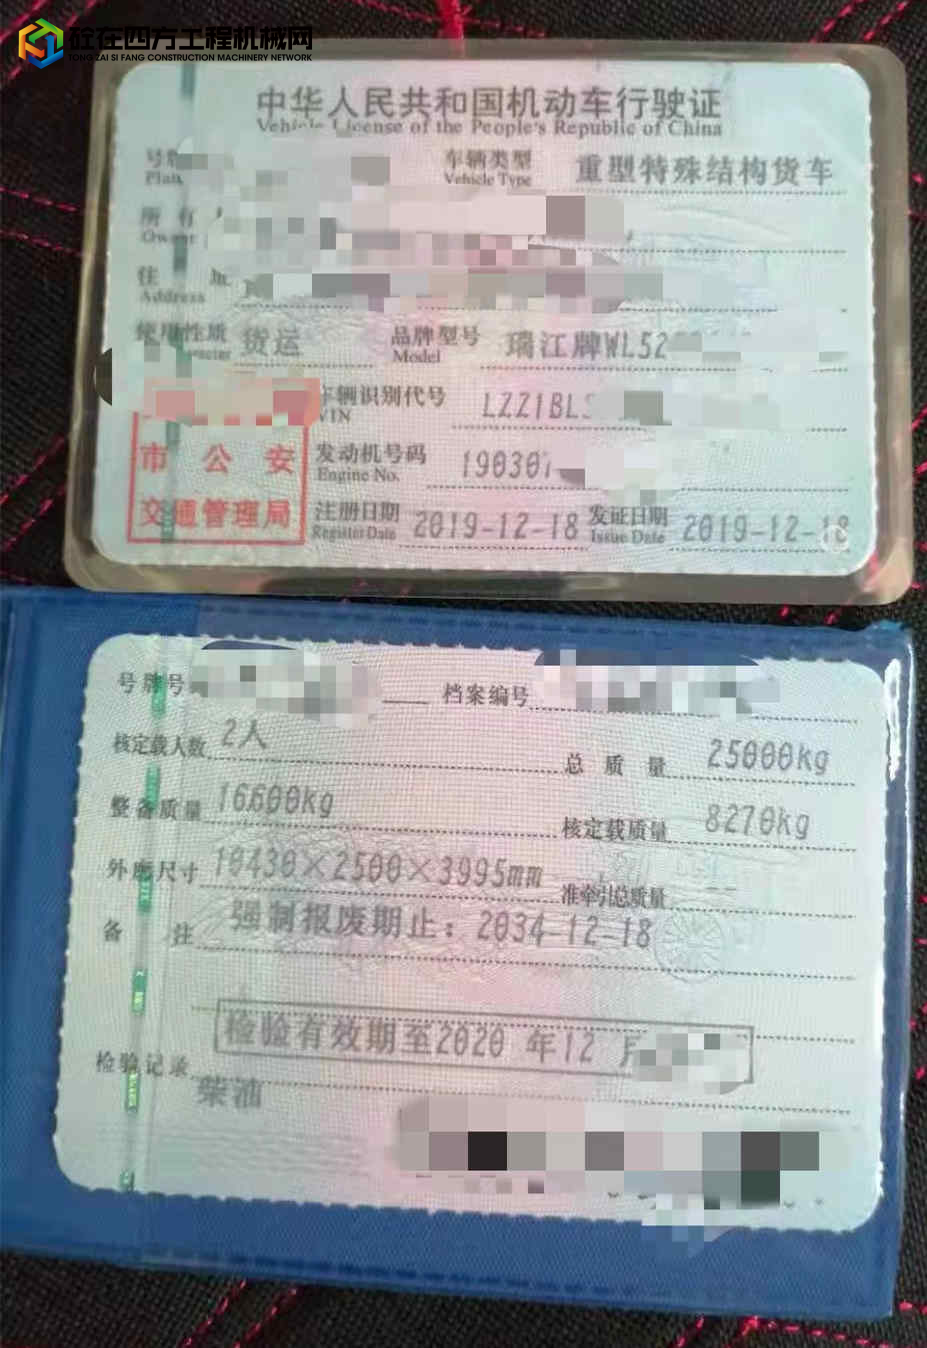 砼在四方工程机械网
TONG ZAI SI FANG CONSTRUCTION MACHINERY NETWORK
中华人民共和国机动车行驶证
Vehicle License of the People's Republic of China
号牌 车辆类型 重型特殊结构货车
Vehicle Type
所有
Owner
住 址
Address
使用性质 货运 品牌型号 瑞江牌WL52
Model
车辆识别代号 LZZ1BLS
VIN
市公安 发动机号码 190307
Engine No.
交通管理局 注册日期 2019-12-18 发证日期 2019-12-18
Register Date Issue Date
号牌号 档案编号
核定载人数 2人 总质量 25000kg
整备质量 16600kg 核定载质量 8270kg
外廓尺寸 10430×2500×3995mm 准牵引总质量 --
备注 强制报废期止：2034-12-18
检验有效期至2020 年12 月
检验记录
柴油